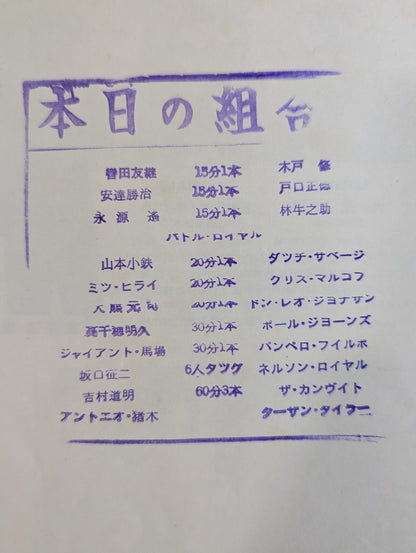 本日の組合
誉田友継 15分1本 木戸修
安達勝治 15分1本 戸口正徳
永源遙 15分1本 林牛之助
バトル・ロイヤル
山本小鉄 20分1本 ダツチ・サベージ
ミツ・ヒライ 20分1本 クリス・マルコフ
大熊元司 20分1本 ドン・レオ・ジョナサン
高千穂明久 30分1本 ポール・ジョーンズ
ジャイアント・馬場 30分1本 パンペロ・フイルポ
坂口征二 6人タツグ ネルソン・ロイヤル
吉村道明 60分3本 ザ・カンヴイト
アントニオ・猪木 ターザン・タイラー